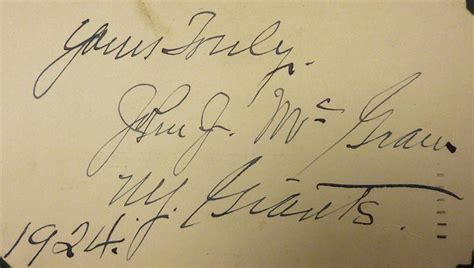 Yours Truly,
John J. McGraw
N.Y. Giants.
1924.